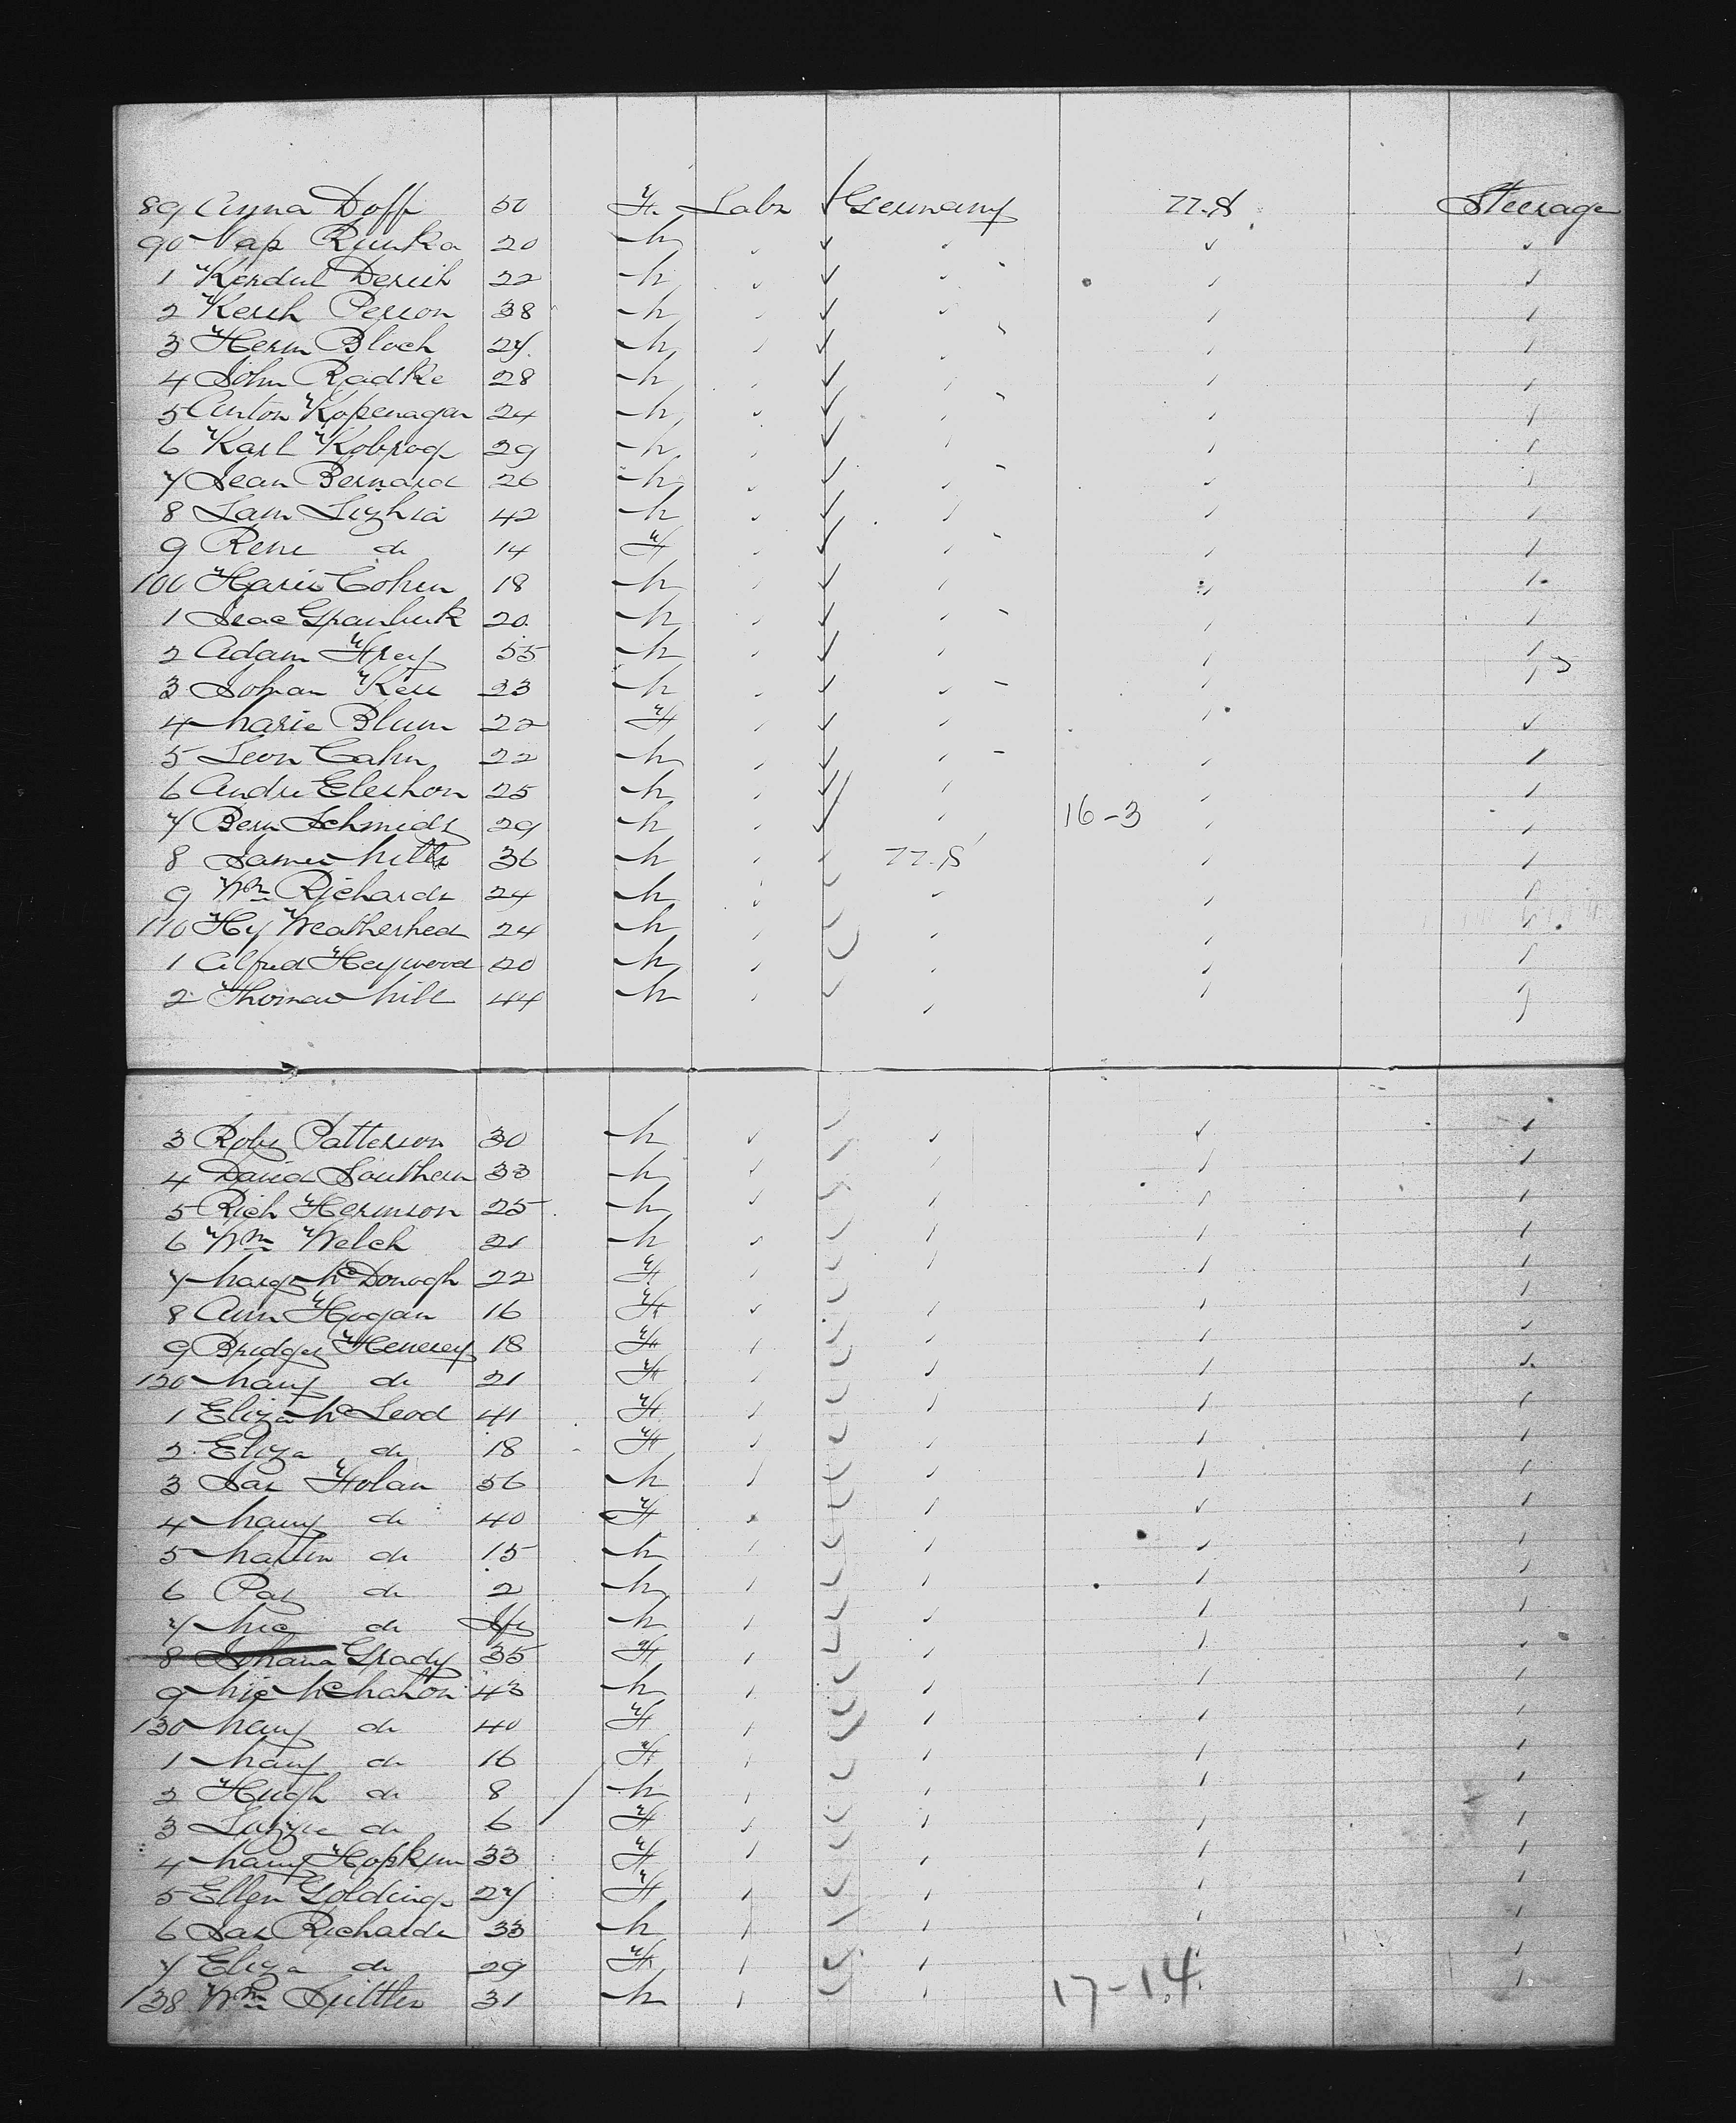 89 Anna Doff 50 F. Labr Germany U.S. Steerage
90 Nap Runka 20 M
1 22 M
2 Person 38 M
3 Herm Bloch 27 M
4 John Radke 28 M
5 Anton Kopenagen 24 M
6 Karl 29 M
7 Jean Bernard 26 M
8 Sam 42 M
9 Rene do 14 F
100 Harris Cohen 18 M
1 20 M
2 Adam Frey 55 M
3 23 M
4 Marie Blum 22 F
5 Leon Cahn 22 M
6 Andre 25 M
7 Bern Schmidt 29 M 16-3
8 James Mills 36 M U.S
9 Wm Richards 24 M
110 Hy Weatherhead 24 M
1 Alfred Heywood 20 M
2 Thomas Mill 44 M
3 Robt Patterson 30 M
4 David Southern 33 M
5 Rich Herinson 25 M
6 Wm Welch 21 M
7 Margt McDonogh 22 F
8 Ann Hogan 16 F
9 Bridget 18 F
120 Mary do 21 F
1 Eliza McLeod 41 F
2 Eliza do 18 F
3 Jas Folan 56 M
4 Mary do 40 F
5 Martin do 15 M
6 Pat do 2 M
7 Mic do Inft M
8 Johana Grady 35 F
9 Mic McMahon 43 M
130 Mary do 40 F
1 Mary do 16 F
2 Hugh do 8 M
3 Lizzie do 6 F
4 Mary Hopkins 33 F
5 Ellen Golding 27 F
6 Jas Richards 33 M
7 Eliza do 29 F
138 Wm 31 M 17-14